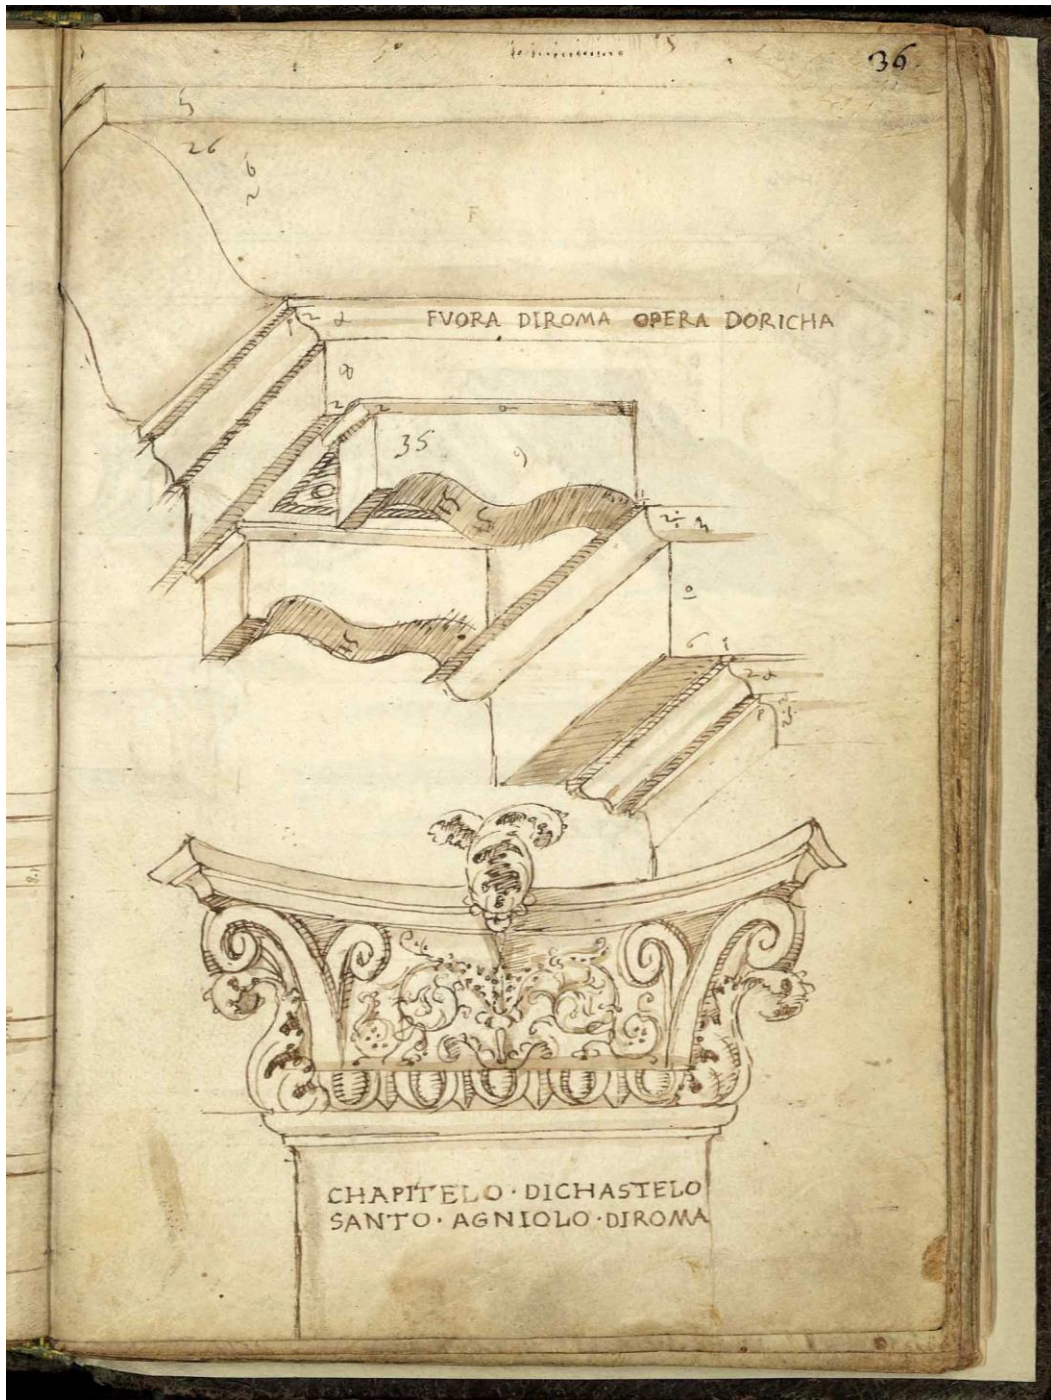 36
5
26
6
2
2 2
FVORA DIROMA OPERA DORICHA
8
2 2
35 9
6
CHAPITELO · DICHASTELO
SANTO · AGNIOLO · DIROMA